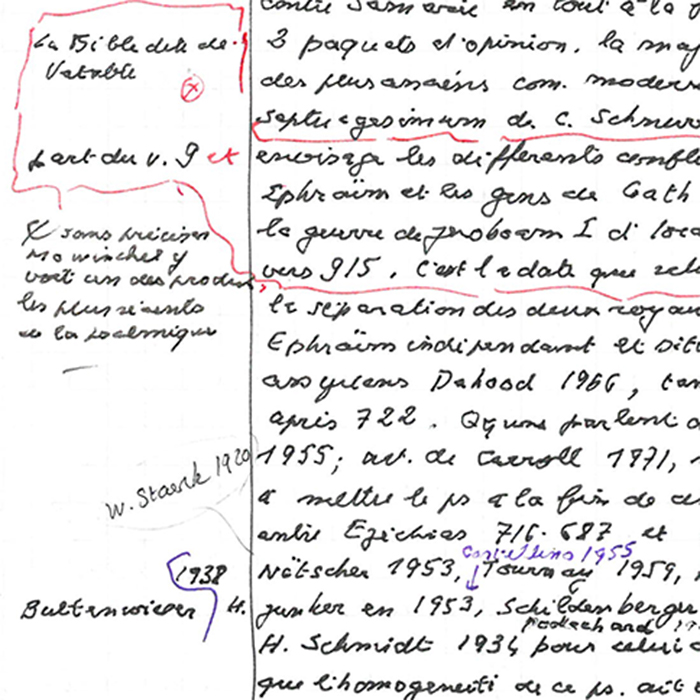 La Bible dite de
Vatable
part du v. 9 et
sans préciser
Mowinckel y
voit un des produits
les plus récents
de la polémique
W. Staerk 1920
1938
Buttenwieser H.
contre Samarie en tout à la
3 paquets d'opinion. la maj
des plus anciens com. modern
septuagesimum de C. Schneur
envisage les différents confl
Ephraïm et les gens de Gath
la guerre de Jeroboam I d'
vers 915. C'est la date que
la séparation des deux royau
Ephraïm indépendant et
assyriens Dahood 1966, tan
après 722. Qquns parlent
1955; art. de Carroll 1971,
à mettre le ps à la fin de
entre Ezéchias 716-687 et
Castellino 1955
Nötscher 1953, Tournay 1959,
Junker en 1953, Schildenberger
Podechard
H. Schmidt 1934 pour celui
que l'homogénéité de ce ps. ait